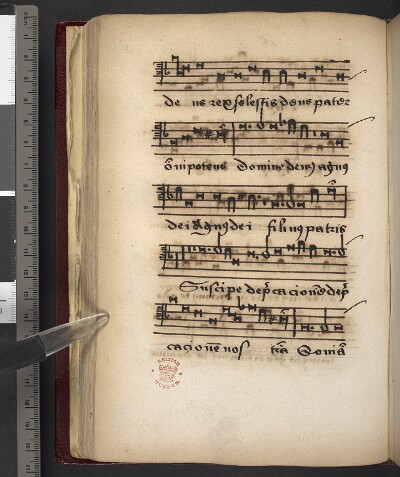 de us rex celestis deus pater
o̅nipotens Domine deus agnus
dei Agnus dei filius patris
Suscipe dep̅cacione dep̅
cacione nos tra̅ Qonia̅